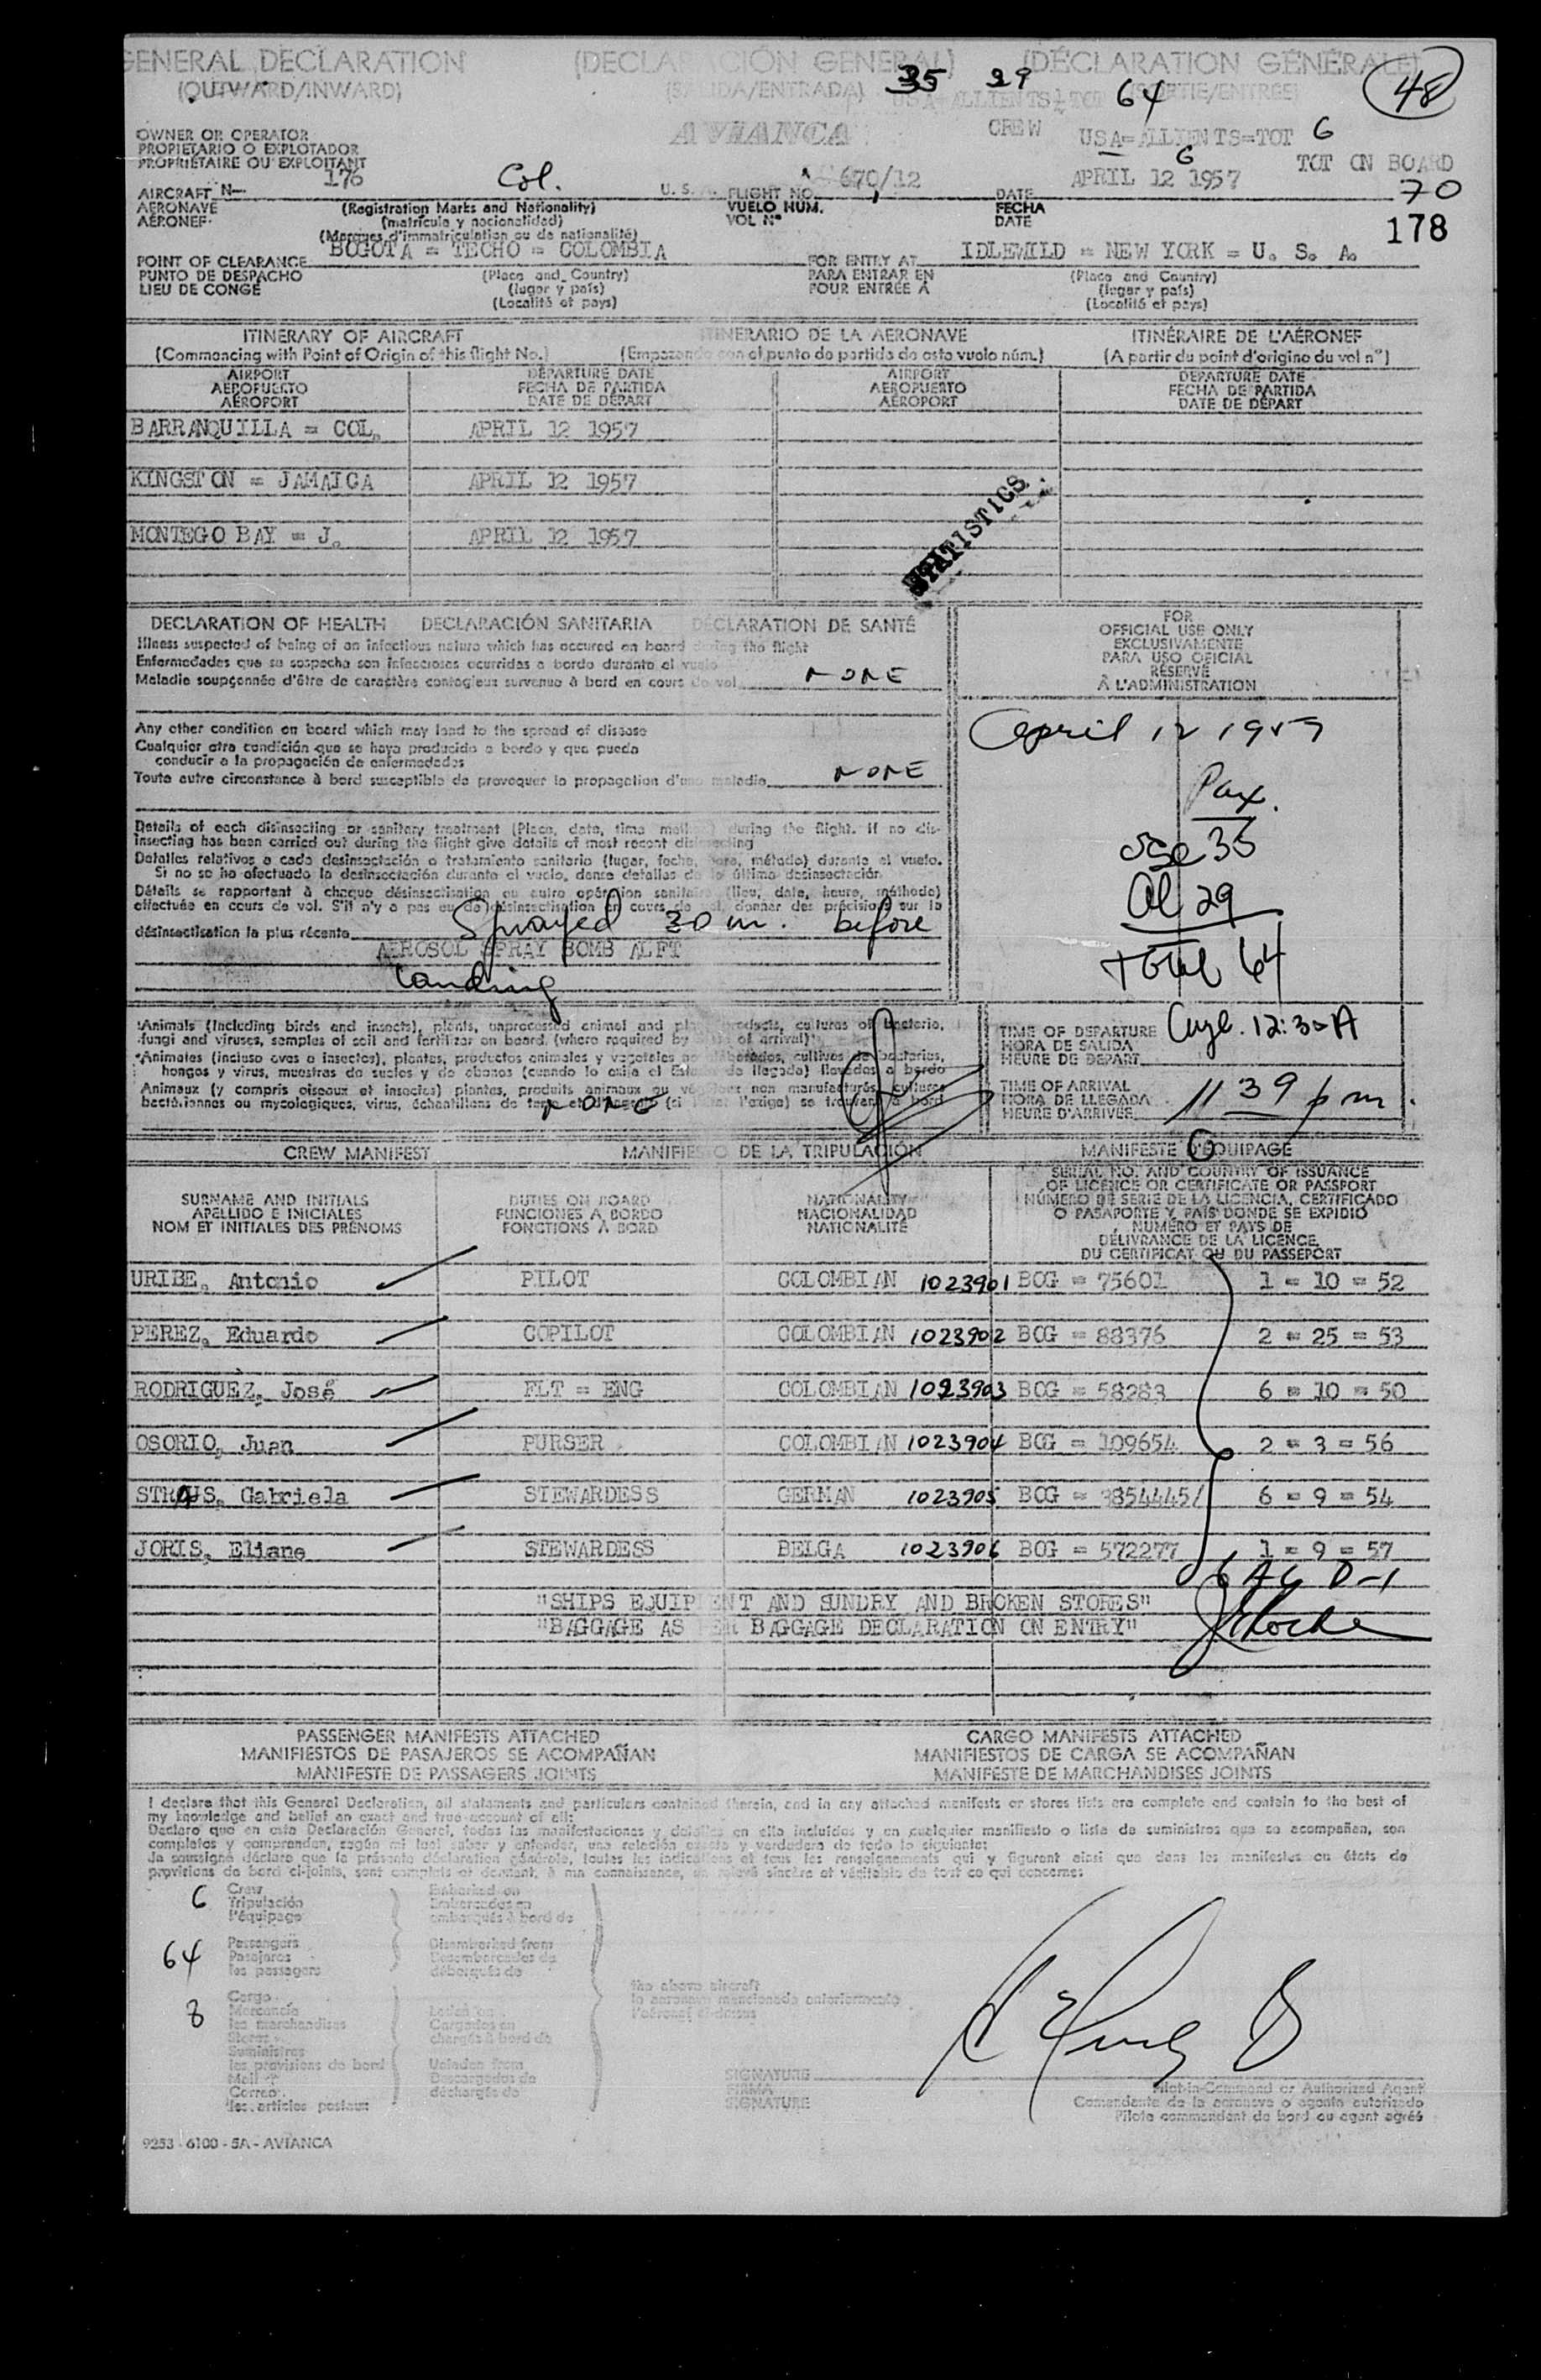 GENERAL DECLARATION (DECLARACIÓN GENERAL) (DÉCLARATION GÉNÉRALE)
(OUTWARD/INWARD) (SALIDA/ENTRADA) (SORTIE/ENTRÉE)
35 29 64 48
USA= ALLIENTS= TOT
OWNER OR OPERATOR AVIANCA CREW USA=ALLIENTS=TOT 6
PROPIETARIO O EXPLOTADOR
PROPRIÉTAIRE OU EXPLOITANT 6 TOT ON BOARD
AIRCRAFT N-176 Col. U. S. FLIGHT NO. 670/12 DATE APRIL 12 1957 70
AERONAVE (Registration Marks and Nationality) VUELO NUM. FECHA
AÉRONEF (matrícula y nacionalidad) VOL Nº DATE 178
(Marques d'immatriculation ou de nationalité)
POINT OF CLEARANCE BOGOTA = TECHO = COLOMBIA FOR ENTRY AT IDLEWILD = NEW YORK = U. S. A.
PUNTO DE DESPACHO (Place and Country) PARA ENTRAR EN (Place and Country)
LIEU DE CONGÉ (lugar y país) POUR ENTRÉE À (lugar y país)
(Localité et pays) (Localité et pays)
ITINERARY OF AIRCRAFT ITINERARIO DE LA AERONAVE ITINÉRAIRE DE L'AÉRONEF
(Commencing with Point of Origin of this flight No.) (Empezando con el punto de partida de este vuelo núm.) (A partir du point d'origine du vol nº)
AIRPORT DEPARTURE DATE AIRPORT DEPARTURE DATE
AEROPUERTO FECHA DE PARTIDA AEROPUERTO FECHA DE PARTIDA
AÉROPORT DATE DE DÉPART AÉROPORT DATE DE DÉPART
BARRANQUILLA = COL. APRIL 12 1957
KINGSTON = JAMAICA APRIL 12 1957
STATISTICS
MONTEGO BAY = J. APRIL 12 1957
DECLARATION OF HEALTH DECLARACIÓN SANITARIA DÉCLARATION DE SANTÉ
Illness suspected of being of an infectious nature which has occured on board during the flight
Enfermedades que se sospecha son infecciosas ocurridas a bordo durante el vuelo
Maladie soupçonnée d'être de caractère contagieux survenue à bord en cours de vol NONE
FOR
OFFICIAL USE ONLY
EXCLUSIVAMENTE
PARA USO OFICIAL
RÉSERVÉ
À L'ADMINISTRATION
Any other condition on board which may lead to the spread of disease
Cualquier otra condición que se haya producido a bordo y que pueda
conducir a la propagación de enfermedades
Toute autre circonstance à bord susceptible de provoquer la propagation d'une maladie NONE
April 12 1957
Pax.
35
Al 29
Total 64
Details of each disinsecting or sanitary treatment (Place, date, time method) during the flight. If no dis-
insecting has been carried out during the flight give details of most recent disinsecting
Detalles relativos a cada desinsectación o tratamiento sanitario (lugar, fecha, hora, método) durante el vuelo.
Si no se ha efectuado la desinsectación durante el vuelo, dense detalles de la última desinsectación
Détails se rapportant à chaque désinsectisation ou autre opération sanitaire (lieu, date, heure, méthode)
effectuée en cours de vol. S'il n'y a pas eu de désinsectisation en cours de vol, donner des précisions sur la
désinsectisation la plus récente Sprayed 30 m. before
AEROSOL SPRAY BOMB ALFT
landing
Animals (Including birds and insects), plants, unprocessed animal and plant products, cultures of bacteria,
fungi and viruses, samples of soil and fertilizer on board. (where required by State of arrival)
Animales (incluso aves e insectos), plantas, productos animales y vegetales no elaborados, cultivos de bacterias,
hongos y virus, muestras de suelos y de abonos (cuando lo exija el Estado de llegada) llevados a bordo
Animaux (y compris oiseaux et insectes) plantes, produits animaux ou végétaux non manufacturés, cultures
bactériennes ou mycologiques, virus, échantillons de terre et d'engrais (si l'État l'exige) se trouvant à bord
NONE
TIME OF DEPARTURE 12:30 A
HORA DE SALIDA
HEURE DE DÉPART
TIME OF ARRIVAL
HORA DE LLEGADA 11 39 pm.
HEURE D'ARRIVÉE
CREW MANIFEST MANIFIESTO DE LA TRIPULACIÓN MANIFESTE D'ÉQUIPAGE
6
SURNAME AND INITIALS DUTIES ON BOARD NATIONALITY
APELLIDO E INICIALES FUNCIONES A BORDO NACIONALIDAD
NOM ET INITIALES DES PRÉNOMS FONCTIONS À BORD NATIONALITÉ
SERIAL NO. AND COUNTRY OF ISSUANCE
OF LICENCE OR CERTIFICATE OR PASSPORT
NÚMERO DE SERIE DE LA LICENCIA, CERTIFICADO
O PASAPORTE Y PAIS DONDE SE EXPIDIÓ
NUMÉRO ET PAYS DE
DÉLIVRANCE DE LA LICENCE,
DU CERTIFICAT OU DU PASSEPORT
URIBE, Antonio PILOT COLOMBIAN 1023901 BOG = 75601 1 = 10 = 52
PEREZ, Eduardo COPILOT COLOMBIAN 1023902 BOG = 88376 2 = 25 = 53
RODRIGUEZ, José FLT = ENG COLOMBIAN 1023903 BOG = 58283 6 = 10 = 50
OSORIO, Juan PURSER COLOMBIAN 1023904 BOG = 109654 2 = 3 = 56
STRAUS, Gabriela STEWARDESS GERMAN 1023905 BOG = 3854445/ 6 = 9 = 54
JORIS, Eliane STEWARDESS BELGA 1023906 BOG = 572277 1 = 9 = 57
6 AG D-1
"SHIPS EQUIPMENT AND SUNDRY AND BROKEN STORES"
"BAGGAGE AS PER BAGGAGE DECLARATION ON ENTRY"
PASSENGER MANIFESTS ATTACHED CARGO MANIFESTS ATTACHED
MANIFIESTOS DE PASAJEROS SE ACOMPAÑAN MANIFIESTOS DE CARGA SE ACOMPAÑAN
MANIFESTE DE PASSAGERS JOINTS MANIFESTE DE MARCHANDISES JOINTS
I declare that this General Declaration, all statements and particulars contained therein, and in any attached manifests or stores lists are complete and contain to the best of
my knowledge and belief an exact and true account of all:
Declaro que en esta Declaración General, todas las manifestaciones y detalles en ella incluidos y en cualquier manifiesto o lista de suministros que se acompañen, son
completos y comprenden, según mi leal saber y entender, una relación exacta y verdadera de todo lo siguiente:
Je soussigné déclare que la présente déclaration générale, toutes les indications et tous les renseignements qui y figurent ainsi que dans les manifestes ou états de
provisions de bord ci-joints, sont complets et donnent, à ma connaissance, un relevé sincère et véritable de tout ce qui concerne:
6 Crew Embarked on
Tripulación Embarcados en
l'équipage embarqués à bord de
64 Passengers Disembarked from
Pasajeros Desembarcados de
les passagers débarqués de
8 Cargo
Mercancía Laden on
les marchandises Cargados en
Stores chargés à bord de
Suministros
les provisions de bord Unladen from
Mail Descargados de
Correo déchargés de
les articles postaux
the above aircraft
la aeronave mencionada anteriormente
l'aéronef ci-dessus
SIGNATURE
FIRMA
SIGNATURE
Pilot-in-Command or Authorized Agent
Comandante de la aeronave o agente autorizado
Pilote commandant de bord ou agent agréé
9253 - 6100 - 5A - AVIANCA